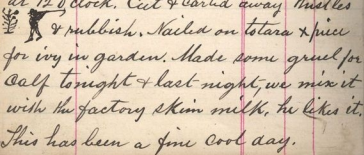 at 12 O,clock. Cut & carted away thistles
& rubbish. Nailed on totara & piece
for ivy in garden. Made some gruel for
Calf tonight & last night, we mix it
with the factory skim milk, he likes it.
This has been a fine cool day.